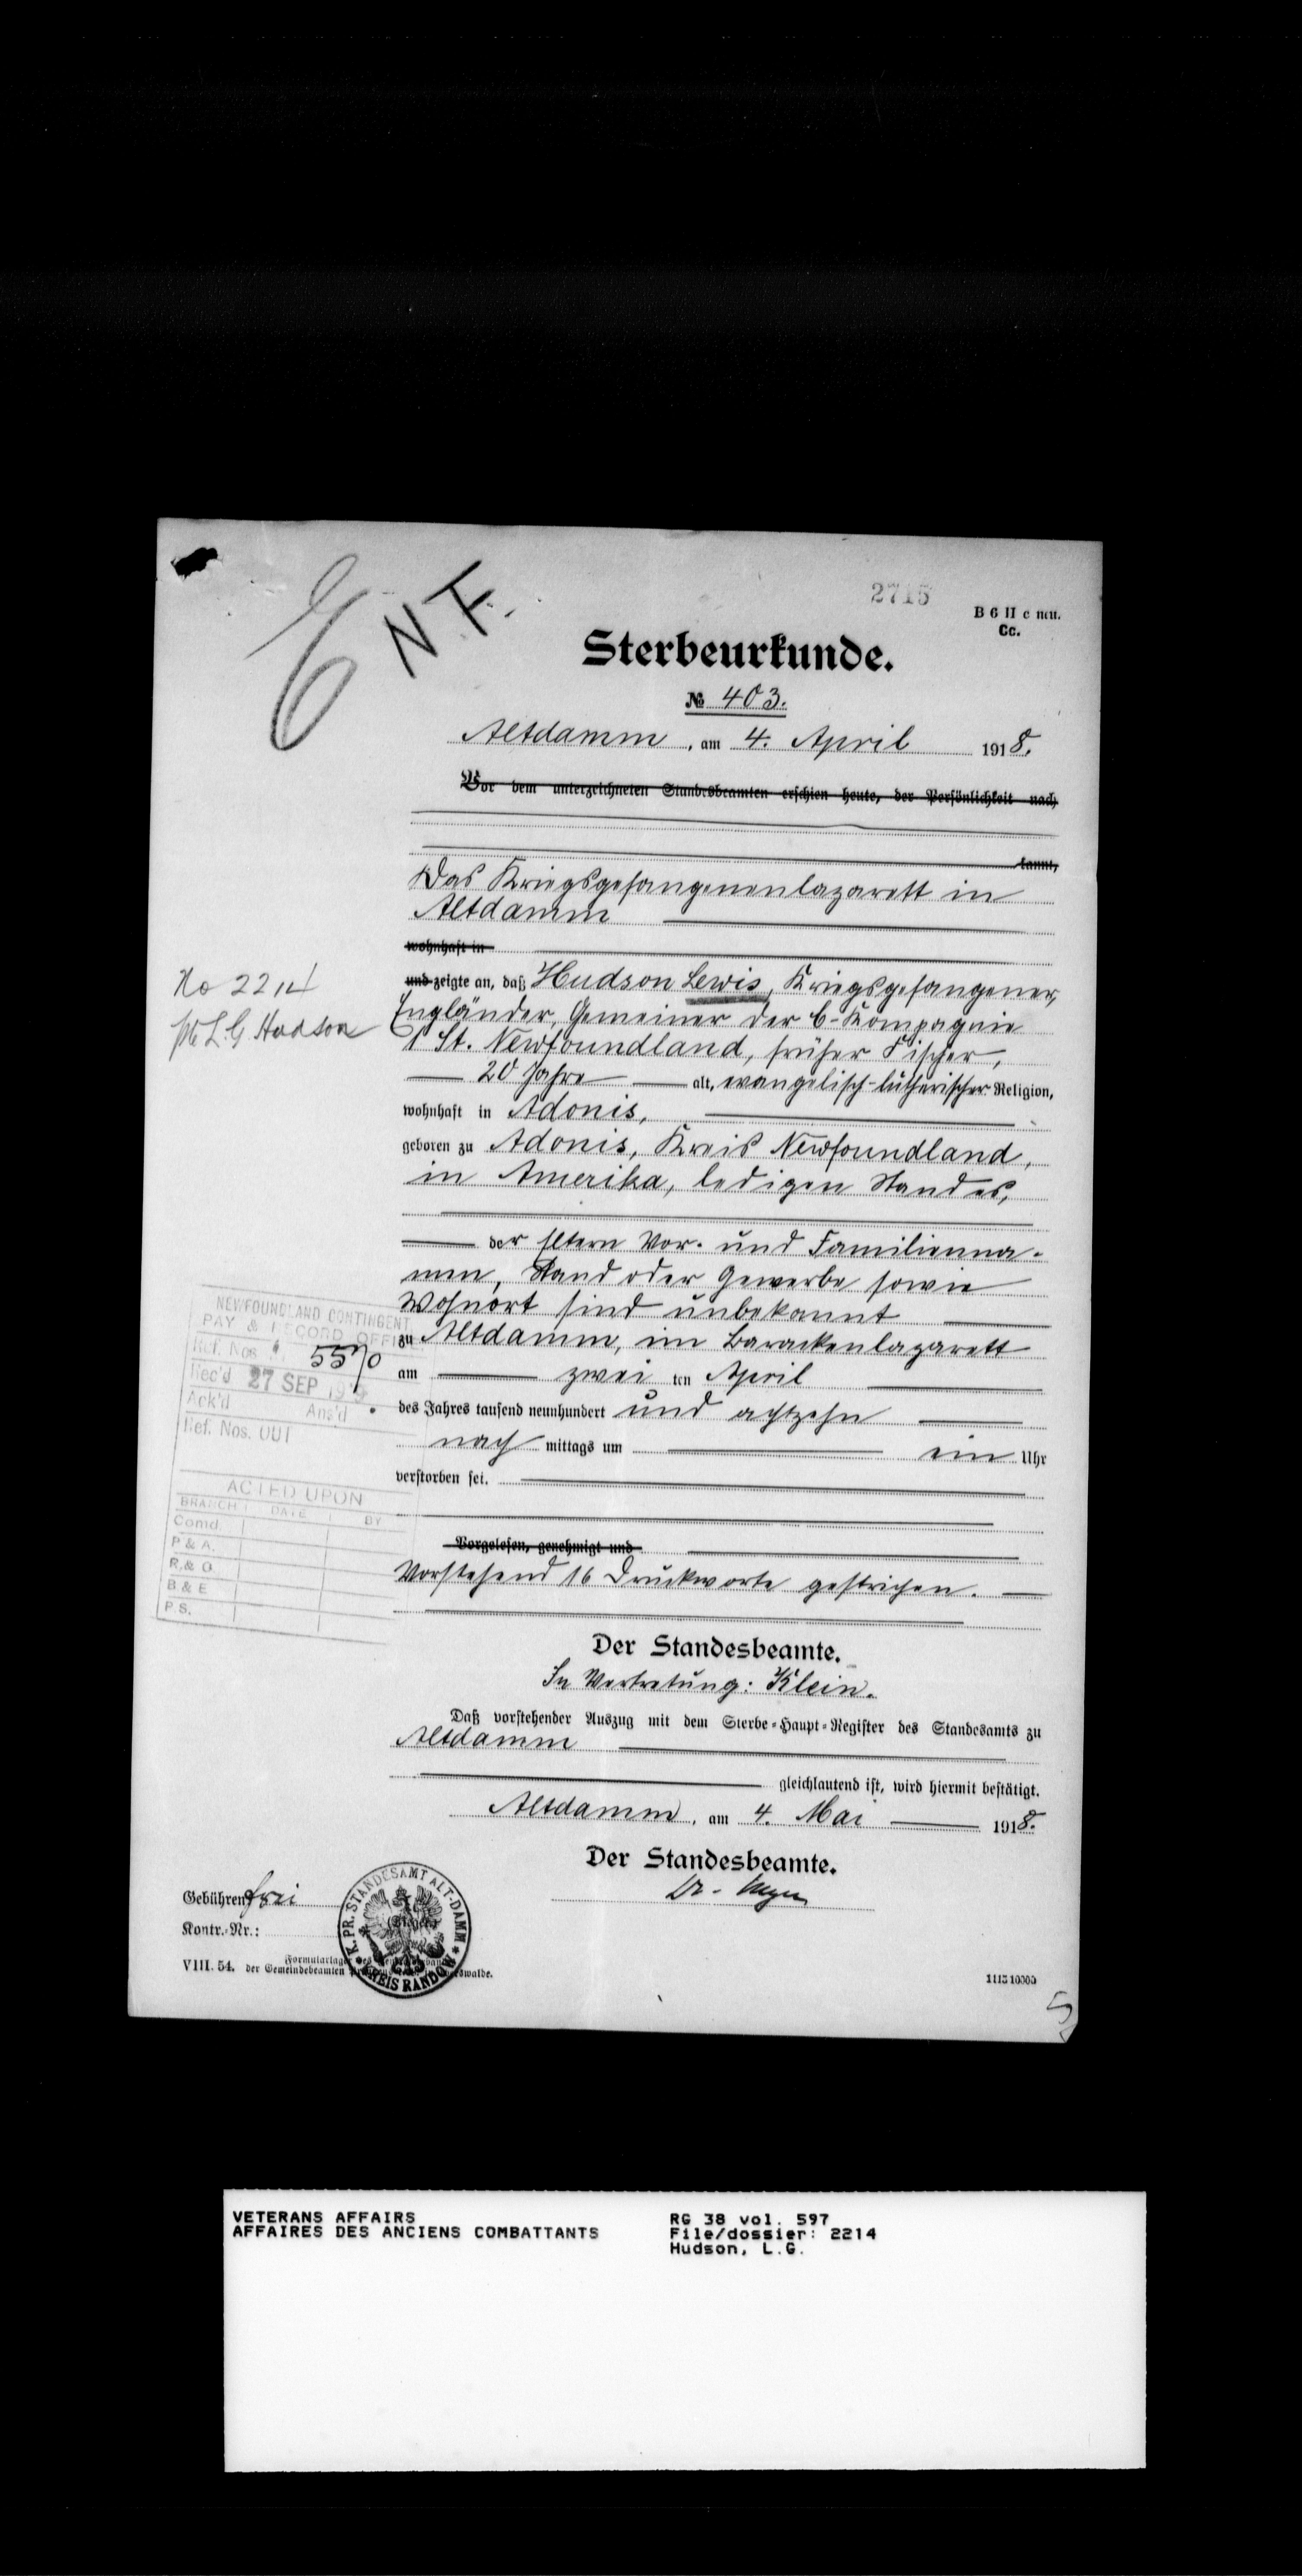 2715
B 6 II c neu.
Cc.
E N F.
Sterbeurkunde.
№ 403.
Altdamm, am 4. April 1918.
Vor dem unterzeichneten Standesbeamten erschien heute, der Persönlichkeit nach
kannt,
Das Kriegsgefangenenlazarett in
Altdamm
wohnhaft in
und zeigte an, daß Hudson Lewis, Kriegsgefangener,
Engländer, Gemeiner der C-Kompagnie
1 St. Newfoundland, früher Fischer,
20 Jahre alt, evangelisch-lutherischer Religion,
wohnhaft in Adonis,
geboren zu Adonis, Kreis Newfoundland,
in Amerika, ledigen Standes,
der Eltern Vor- und Familienna-
men, Stand oder Gewerbe sowie
Wohnort sind unbekannt
zu Altdamm, im Barackenlazarett
am zwei ten April
des Jahres tausend neunhundert und achtzehn
nach mittags um ein Uhr
verstorben sei.
Vorgelesen, genehmigt und
Vorstehend 16 Druckworte gestrichen.
Der Standesbeamte.
In Vertretung: Klein.
Daß vorstehender Auszug mit dem Sterbe-Haupt-Register des Standesamts zu
Altdamm
gleichlautend ist, wird hiermit bestätigt.
Altdamm, am 4. Mai 1918.
Der Standesbeamte.
Dr.
Gebühren frei
Kontr.-Nr.:
VIII. 54. Formularlage
der Gemeindebeamten
K. PR. STANDESAMT ALT-DAMM
KREIS RANDOW
No 2214
Pte L. G. Hudson
NEWFOUNDLAND CONTINGENT
PAY & RECORD OFFICE
Ref. Nos. 5570
Rec'd 27 SEP
Ack'd Ans'd
Ref. Nos. OUT
ACTED UPON
BRANCH DATE BY
Comd.
P & A.
R. & O.
B & E
P.S.
VETERANS AFFAIRS
AFFAIRES DES ANCIENS COMBATTANTS
RG 38 vol. 597
File/dossier: 2214
Hudson, L.G.